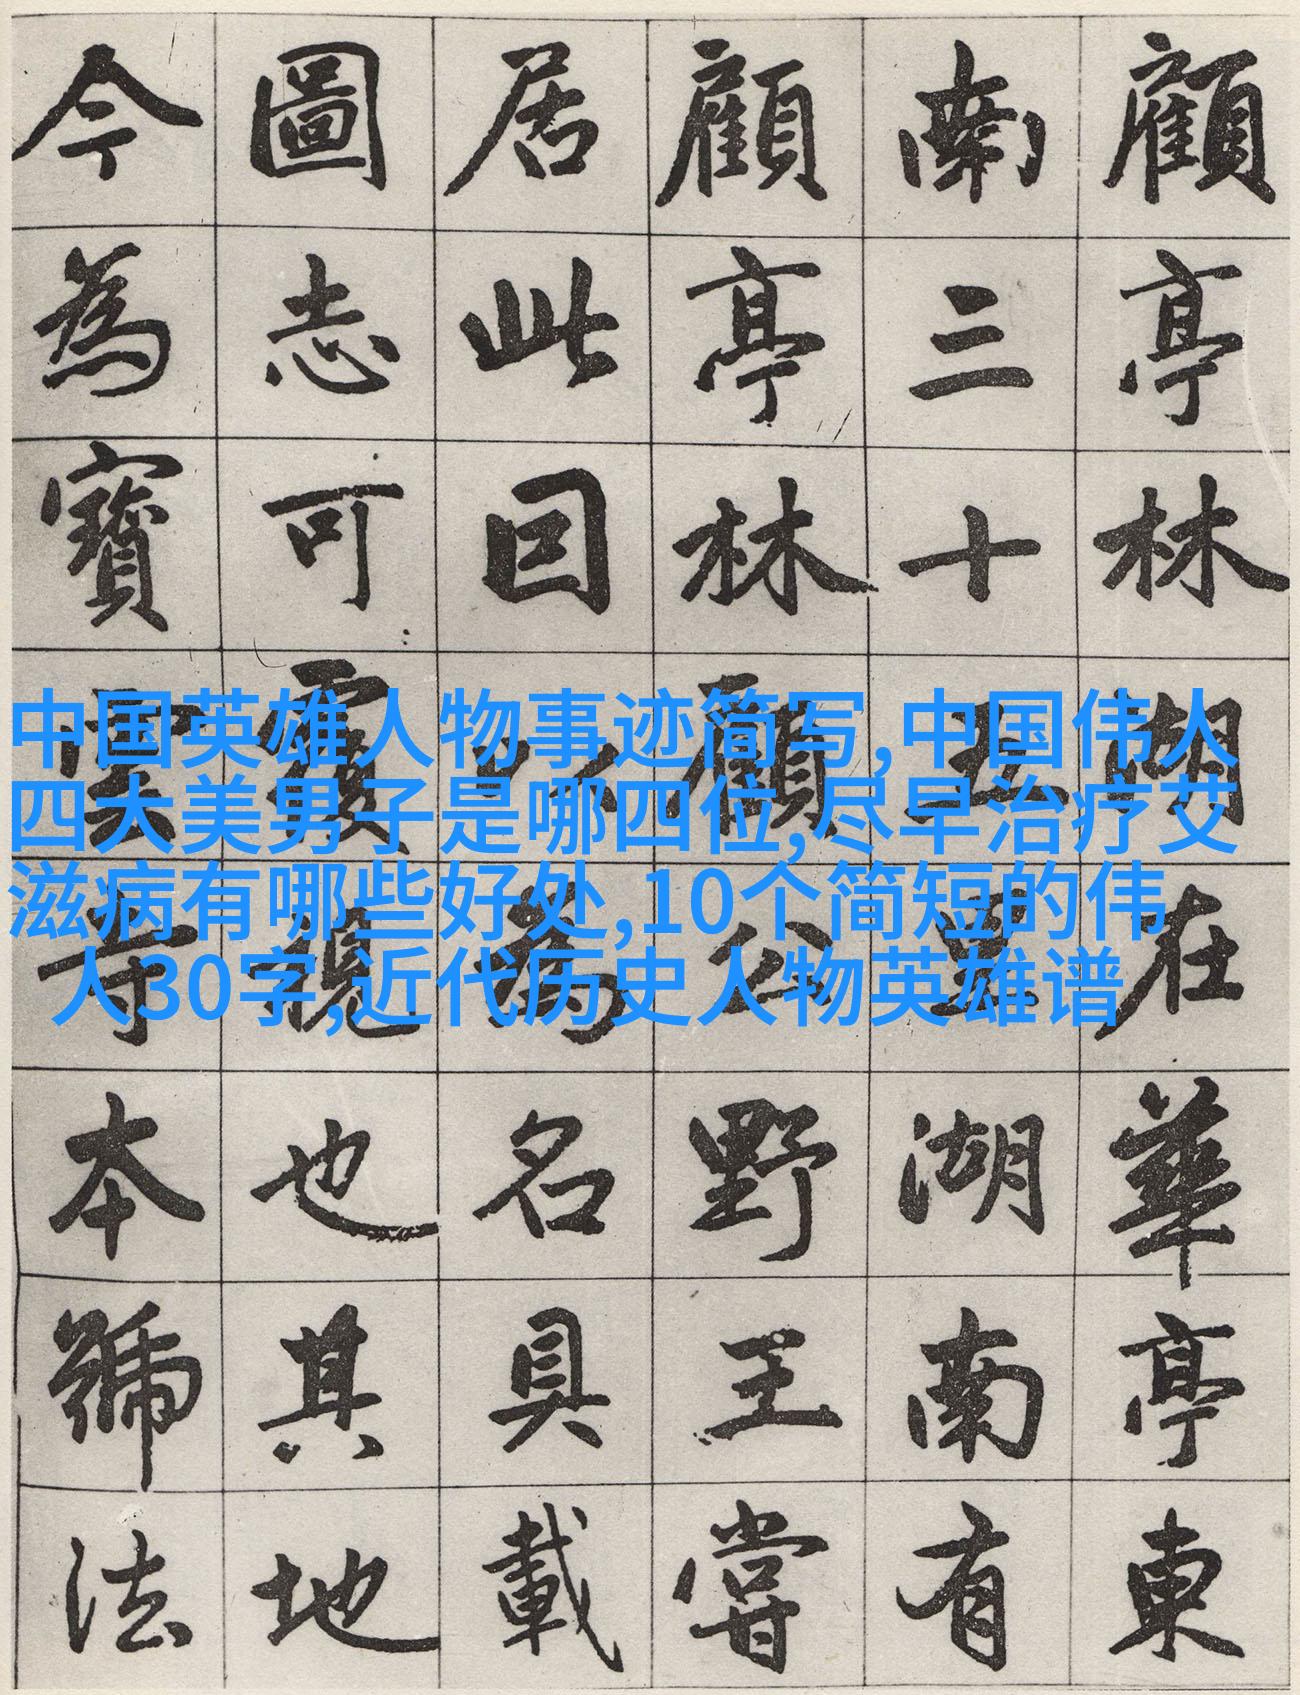 顧亭林湖在華亭東
南三十五里湖南有
顧亭林顧公野王嘗
居此囙以為名具載
圖志可覆視也其地
今為寶雲寺本號法
中国英雄人物事迹简写,中国伟人
四大美男子是哪四位,尽早治疗艾
滋病有哪些好处,10个简短的伟
人30字,近代历史人物英雄谱